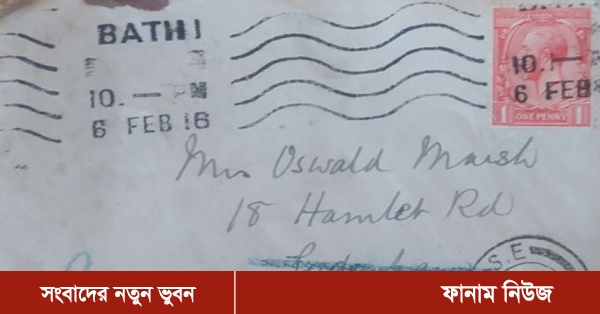 BATH
10. — PM
6 FEB 16
10.
6 FEB
1 ONE PENNY 1
Mrs Oswald Marsh
18 Hamlet Rd
S.E
সংবাদের নতুন ভুবন
ফানাম নিউজ